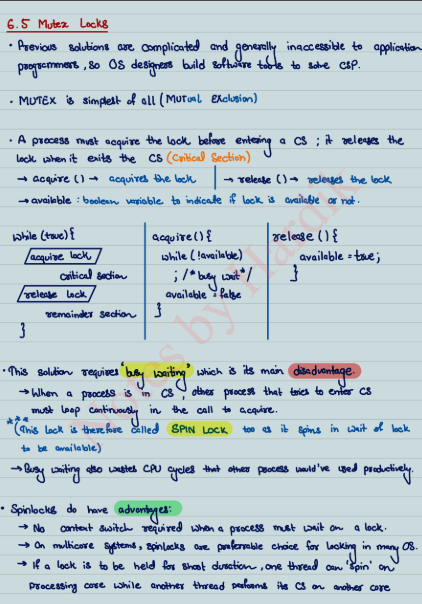 6.5 Mutex Locks
• Previous solutions are complicated and generally inaccessible to application
programmers, so OS designers build software tools to solve CSP.
• MUTEX is simplest of all (MUTual EXclusion)
• A process must acquire the lock before entering a CS ; it releases the
lock when it exits the CS (Critical Section)
→ acquire () → acquires the lock | → release () → releases the lock
→ available : boolean variable to indicate if lock is available or not.
while (true) {
acquire lock
critical section
release lock
remainder section
}
acquire () {
while (!available)
; /* busy wait */
available = false
}
release () {
available = true;
}
• This solution requires "busy waiting" which is its main disadvantage.
→ When a process is in CS, other process that tries to enter CS
must loop continuously in the call to acquire.
*** (This lock is therefore called SPIN LOCK too as it spins in wait of lock
to be available)
→ Busy waiting also wastes CPU cycles that other process would've used productively.
• Spinlocks do have advantages:
→ No context switch required when a process must wait on a lock.
→ On multicore systems, spinlocks are preferrable choice for locking in many OS.
→ If a lock is to be held for short duration, one thread can 'spin' on
processing core while another thread performs its CS on another core
Notes by Hardik